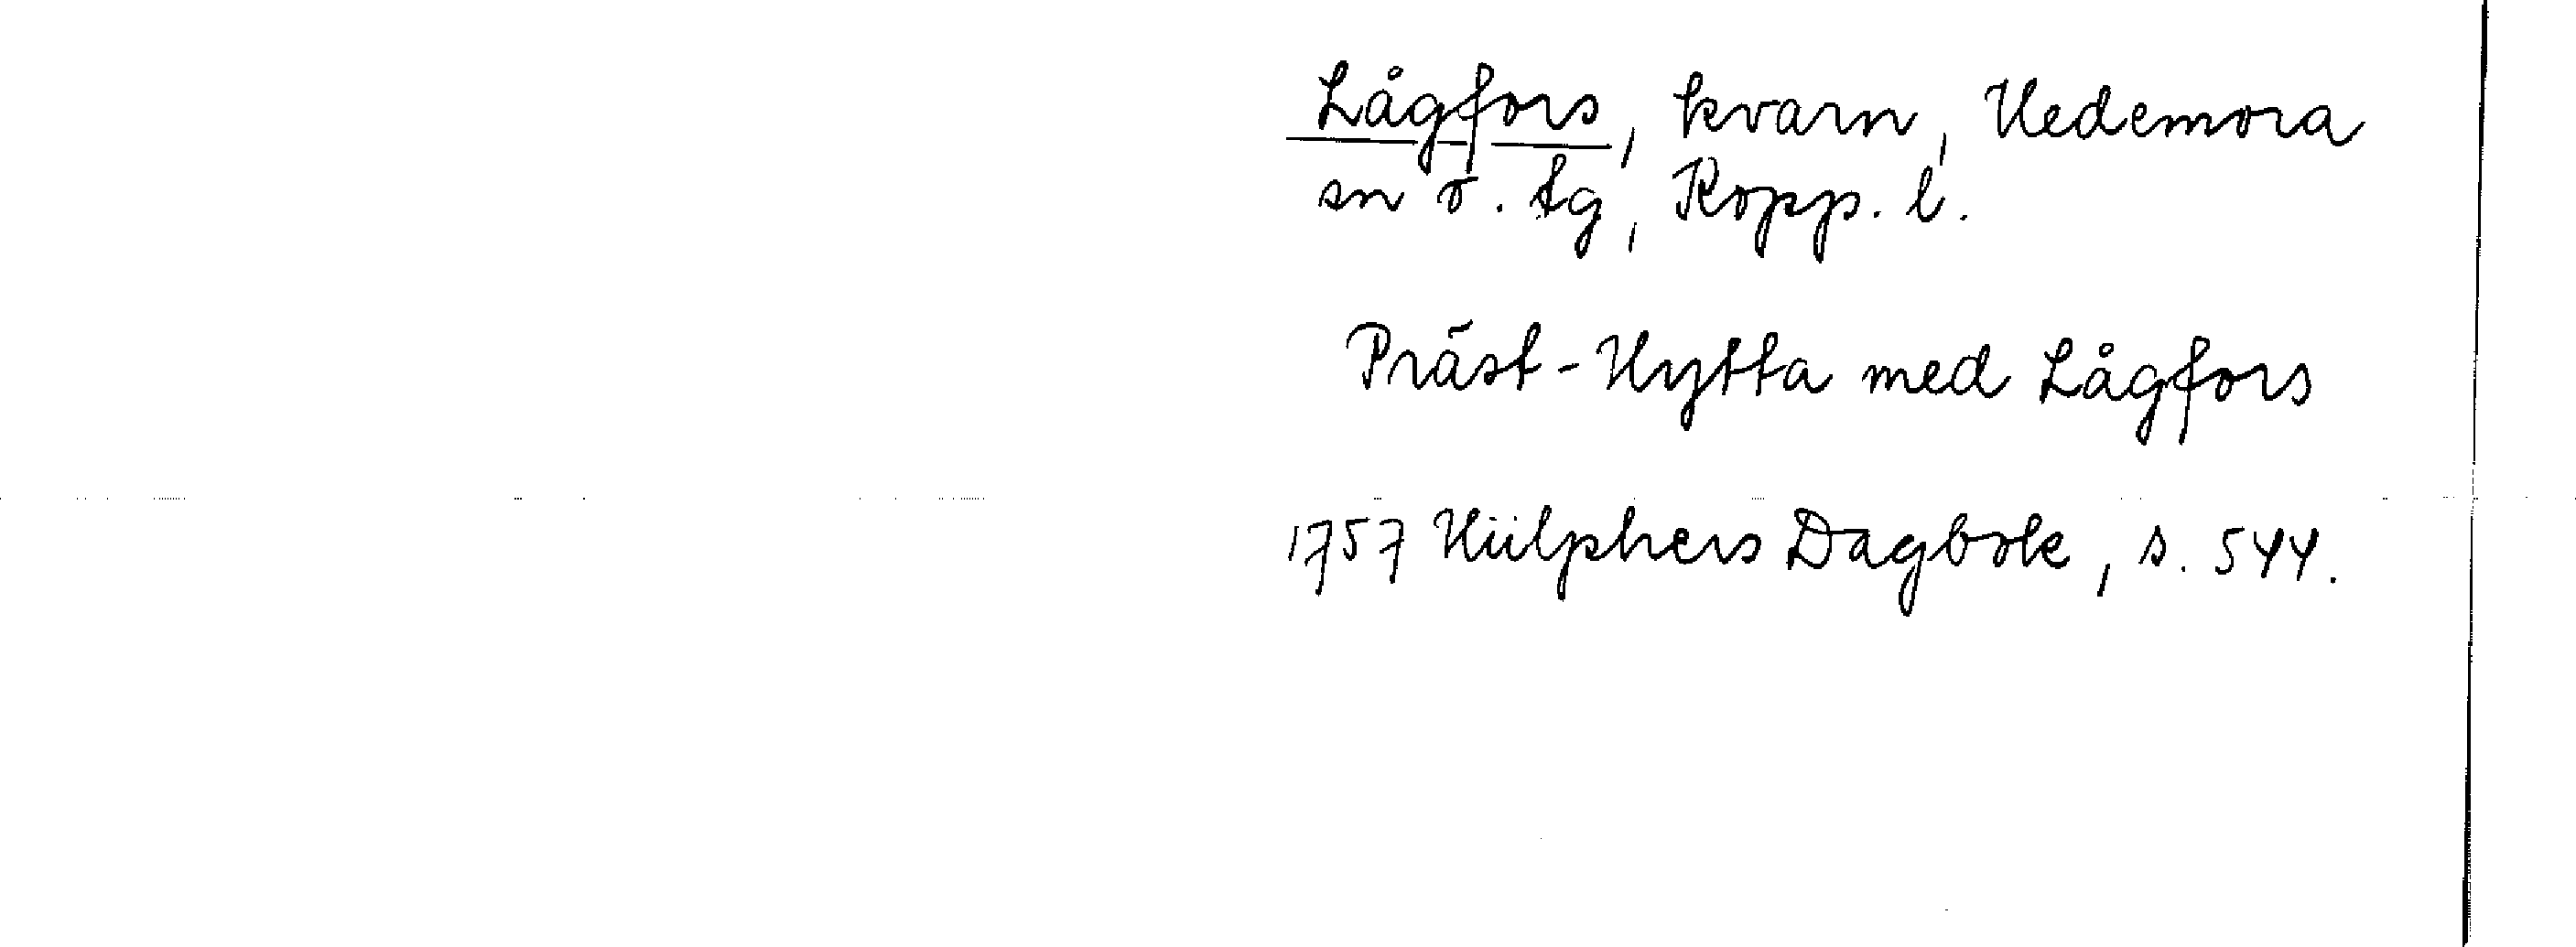 Lågfors, kvarn, Hedemora
sn o. tg, Kopp. l.
Präst-Hytta med Lågfors
1757 Hülphers Dagbok, s. 544.